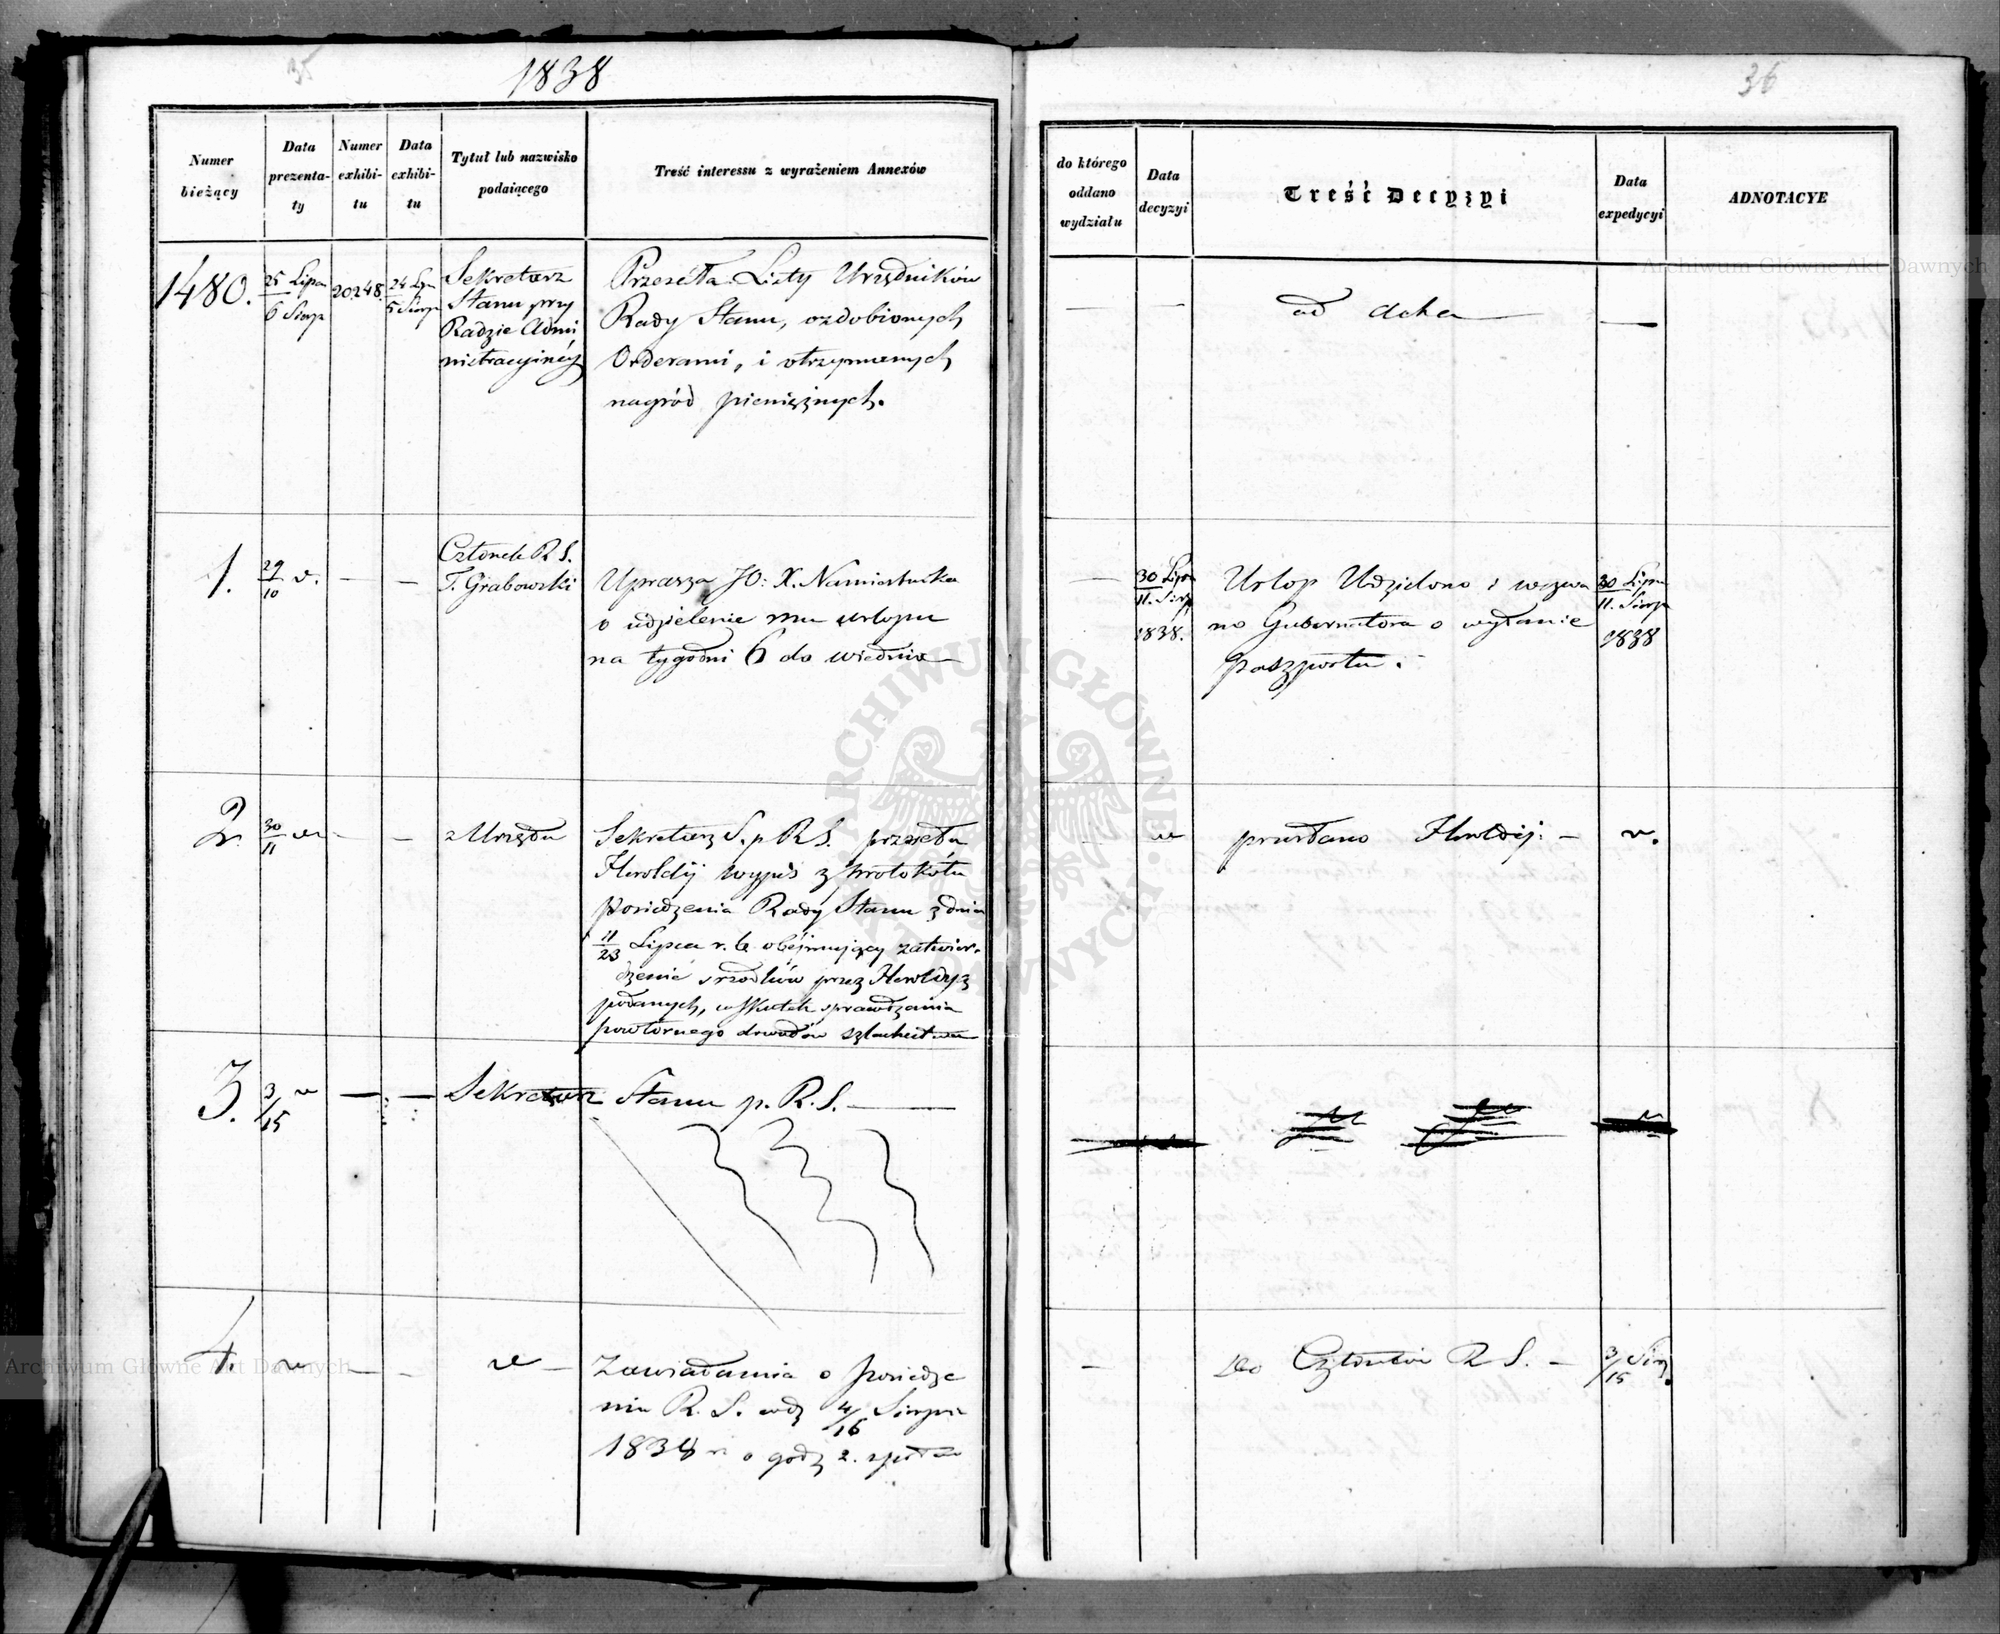 35
1838
Numer bieżący
Data prezenta-ty
Numer exhibi-tu
Data exhibi-tu
Tytuł lub nazwisko podaiącego
Treść interessu z wyrażeniem Annexów
1480.
25 Lipca
6 Sierp
20248
24 Lip
5 Sierp
Sekretarz
Stanu przy
Radzie Admi
nistracyjnéj
Przeséła Listy Urzędników
Rady Stanu, ozdobionych
Orderami, i otrzymanych
nagród pieniężnych.
1.
29
10
v.
Członek R S.
T. Grabowski
Uprasza JO: X. Namiestnika
o udzielenie mu urlopu
na tygodni 6 do Wiednia
2.
30
11
z Urzędu
Sekretarz S. p R S. przeseła
Heroldij wypis z protokółu
posiedzenia Rady Stanu z dnia
11/23 Lipca r. b obéjmujący zatwier-
dzenie srzodków przez Heroldyą
podanych, wskutek sprawdzania
powtórnego dowodów szlachectwa
3.
3/15
Sekretarz Stanu p. R. S.
4.
v
Zawiadamia o posiedze
niu R. S. 4/16 Sierpnia
1838 r. o godz 2.
36
do którego oddano wydziału
Data decyzyi
Treść Decyzyi
Data expedycyi
ADNOTACYE
ad acta
30 Lipca
11. Sierp
1838.
Urlop Udzielono i wezwa
no Gubernatora o wydanie
paszportu.
30 Lipca
11. Sierp
1838
v
przesłano Heroldij:
v.
Do Członków R S.
3/15 Sierp.
Archiwum Główne Akt Dawnych
Archiwum Główne Akt Dawnych
ARCHIWUM GŁÓWNE AKT DAWNYCH